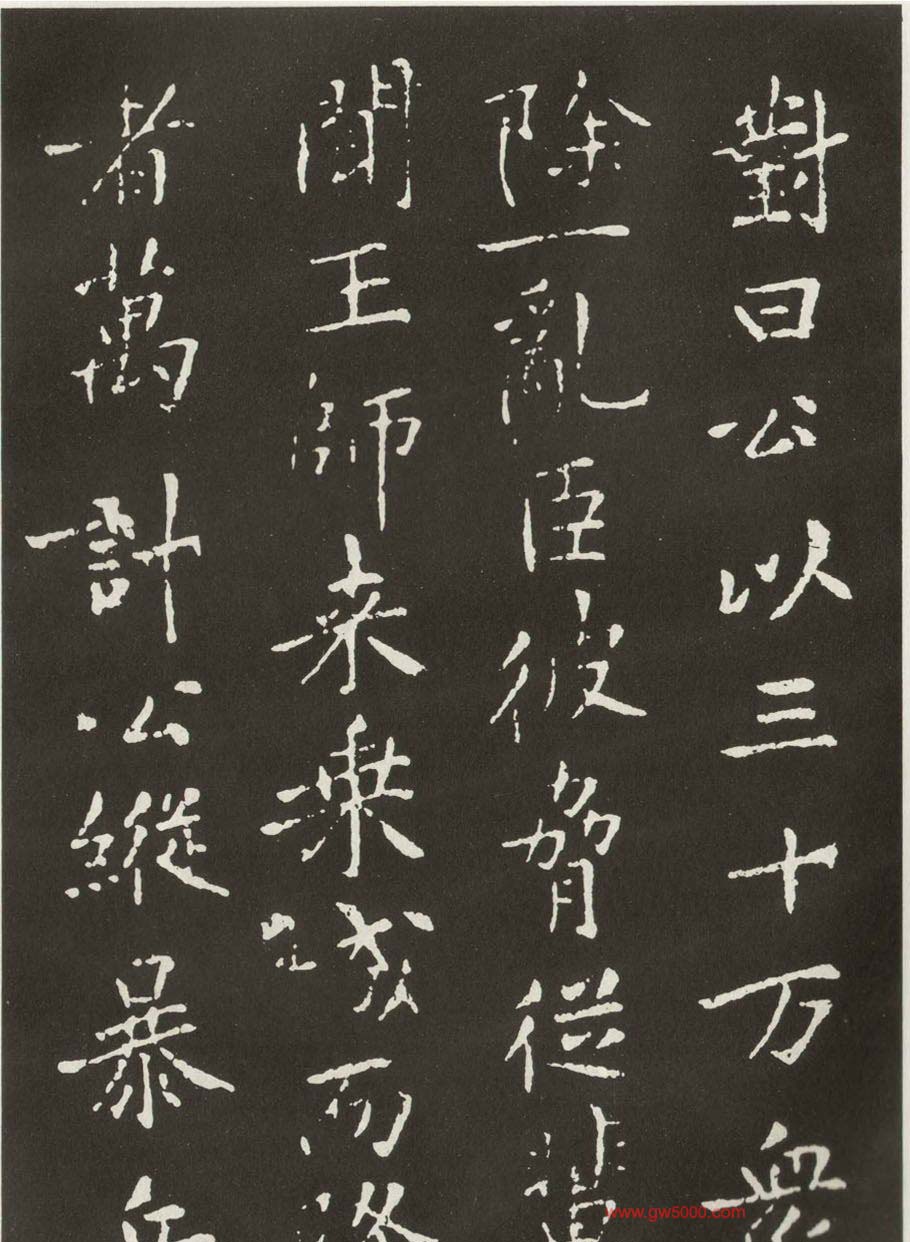 對曰公以三十万衆
除一亂臣彼脅從輩
聞王師来乗城而
者萬計公縱暴兵
www.gw5000.com